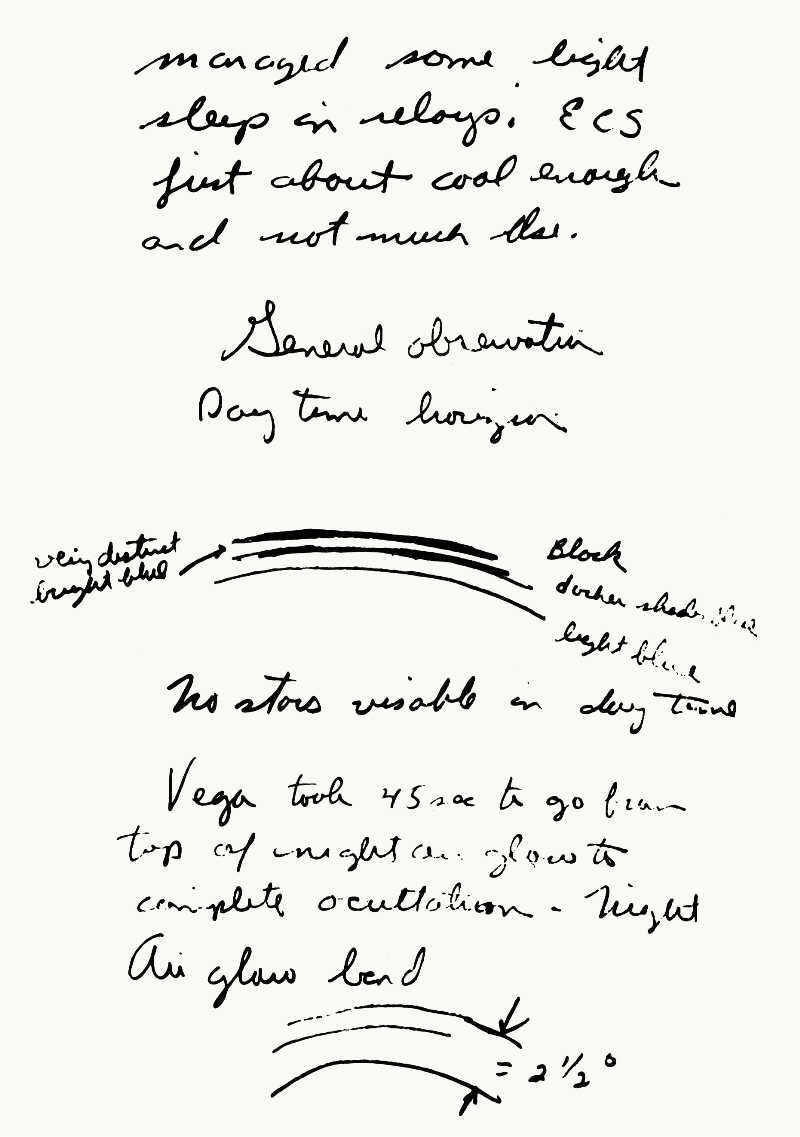 managed some light
sleep in relays. ECS
just about cool enough
and not much else.
General observation
Day time horizon
very distinct
bright blue
Black
darker shade blue
light blue
No stars visible in day time
Vega took 45 sec to go from
top of night air glow to
complete occultation - Night
Air glow band
= 2 1/2 °